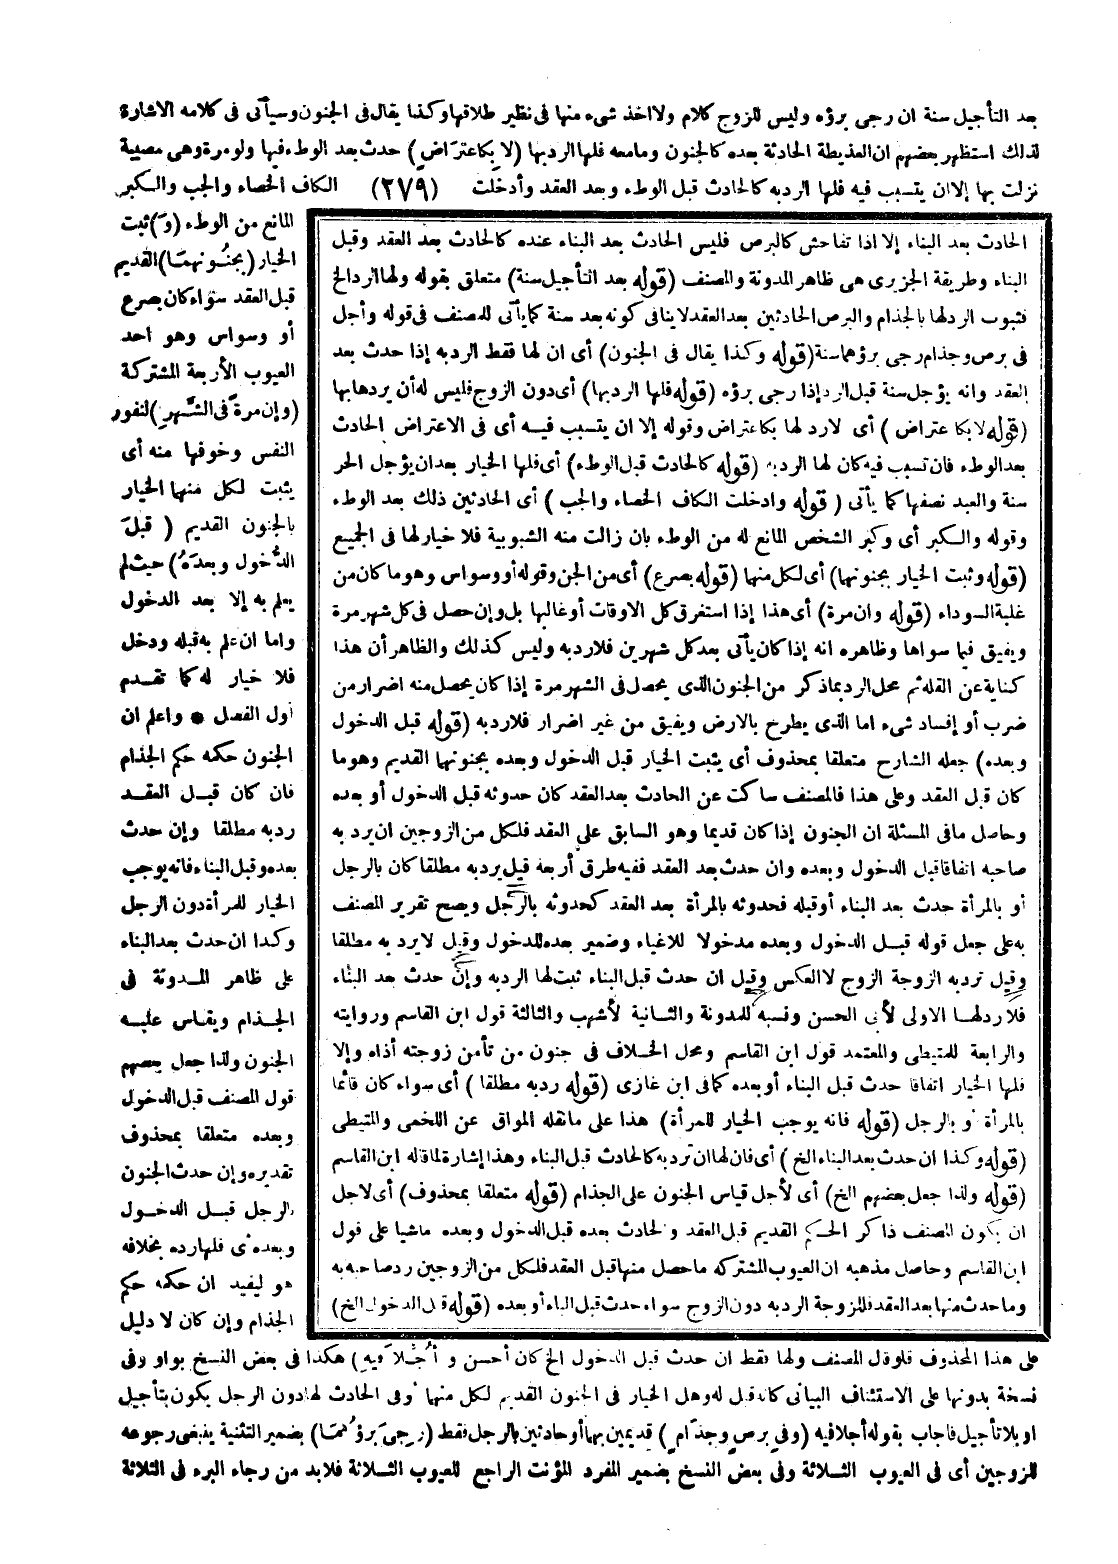 بعد التأجيل سنة ان رجى برؤه وليس للزوج كلام ولا اخذ شىء منها فى نظير طلاقها وكذا يقال فى الجنون وسيأتى فى كلامه الاشارة
لذلك استظهر بعضهم ان العذيطة الحادثة بعده كالجنون ومامعه فلها الرد بها (لا بكاعتراض) حدث بعد الوطء فيها ولو مرة وهى مصيبة
نزلت بها إلا ان يتسبب فيه فلها الرد به كالحادث قبل الوطء وبعد العقد وأدخلت (٢٧٩) الكاف الخصاء والجب والكبر
المانع من الوطء (و) ثبت
الخيار (بجنونهما) القديم
قبل العقد سواء كان بصرع
أو وسواس وهو احد
العيوب الأربعة المشتركة
(وإن مرة فى الشهر) لنفور
النفس وخوفها منه أى
يثبت لكل منها الخيار
بالجنون القديم (قبل
الدخول وبعده) حيث لم
يعلم به إلا بعد الدخول
واما ان علم به قبله ودخل
فلا خيار له كما تقدم
أول الفصل * واعلم ان
الجنون حكمه حكم الجذام
فان كان قبل العقد
رد به مطلقا وإن حدث
بعده وقبل البناء فانه يوجب
الخيار للمرأة دون الرجل
وكذا ان حدث بعد البناء
على ظاهر المدونة فى
الجذام ويقاس عليه
الجنون ولذا جعل بعضهم
قول المصنف قبل الدخول
وبعده متعلقا بمحذوف
تقديره وإن حدث الجنون
بالرجل قبل الدخول
وبعده أى فلها رده بخلافه
هو ليفيد ان حكمه حكم
الجذام وإن كان لا دليل
الحادث بعد البناء إلا اذا تفاحش كالبرص فليس الحادث بعد البناء عنده كالحادث بعد العقد وقبل
البناء وطريقة الجزيرى هى ظاهر المدونة والمصنف (قوله بعد التأجيل سنة) متعلق بقوله ولها الرد الخ
فثبوب الرد لها بالجذام والبرص الحادثين بعد العقد لا ينافى كونه بعد سنة كما يأتى للمصنف فى قوله وأجل
فى برص وجذام رجى برؤهما سنة (قوله وكذا يقال فى الجنون) أى ان لها فقط الرد به إذا حدث بعد
العقد وانه يؤجل سنة قبل الرد إذا رجى برؤه (قوله فلها الرد بها) أى دون الزوج فليس له أن يردها بها
(قوله لا بكا عتراض) أى لا رد لها بكاعتراض وقوله إلا ان يتسبب فيه أى فى الاعتراض الحادث
بعد الوطء فان تسبب فيه كان لها الرد به (قوله كالحادث قبل الوطء) أى فلها الخيار بعد ان يؤجل الحر
سنة والعبد نصفها كما يأتى (قوله وادخلت الكاف الخصاء والجب) أى الحادثين ذلك بعد الوطء
وقوله والكبر أى وكبر الشخص المانع له من الوطء بان زالت منه الشبوبية فلا خيار لها فى الجميع
(قوله وثبت الخيار بجنونها) أى لكل منها (قوله بصرع) أى من الجن وقوله أو وسواس وهو ما كان من
غلبة السوداء (قوله وان مرة) أى هذا إذا استغرق كل الاوقات أو غالبها بل وإن حصل فى كل شهر مرة
ويفيق فيما سواها وظاهره انه إذا كان يأتى بعد كل شهرين فلا رد به وليس كذلك والظاهر أن هذا
كناية عن القلة ثم محل الرد بماذكر من الجنون الذى يحصل فى الشهر مرة إذا كان يحصل منه اضرار من
ضرب أو إفساد شىء اما الذى يطرح بالارض ويفيق من غير اضرار فلا رد به (قوله قبل الدخول
وبعده) جعله الشارح متعلقا بمحذوف أى يثبت الخيار قبل الدخول وبعده بجنونها القديم وهو ما
كان قبل العقد وعلى هذا فالمصنف ساكت عن الحادث بعد العقد كان حدوثه قبل الدخول أو بعده
وحاصل مافى المسئلة ان الجنون إذا كان قديما وهو السابق على العقد فلكل من الزوجين ان يرد به
صاحبه اتفاقا قبل الدخول وبعده وان حدث بعد العقد ففيه طرق أربعة قيل يرد به مطلقا كان بالرجل
أو بالمرأة حدث بعد البناء أو قبله فحدوثه بالمرأة بعد العقد كحدوثه بالرجل ويصح تقرير المصنف
به على جعل قوله قبل الدخول وبعده مدخولا للاغياء وضمير بعده للدخول وقيل لا يرد به مطلقا
وقيل ترد به الزوجة الزوج لا العكس وقيل ان حدث قبل البناء ثبت لها الرد به وإن حدث بعد البناء
فلا رد لها الاولى لأبى الحسن ونسبه للمدونة والثانية لأشهب والثالثة قول ابن القاسم وروايته
والرابعة للمتيطى والمعتمد قول ابن القاسم ومحل الخلاف فى جنون من تأمن زوجته أذاه وإلا
فلها الخيار اتفاقا حدث قبل البناء أو بعده كما فى ابن غازى (قوله رد به مطلقا) أى سواء كان قائما
بالمرأة أو بالرجل (قوله فانه يوجب الخيار للمرأة) هذا على مانقله المواق عن اللخمى والمتيطى
(قوله وكذا ان حدث بعد البناء الخ) أى فان لها ان ترد به كالحادث قبل البناء وهذا إشارة لما قاله ابن القاسم
(قوله ولذا جعل بعضهم الخ) أى لأجل قياس الجنون على الجذام (قوله متعلقا بمحذوف) أى لاجل
ان يكون المصنف ذاكر الحكم القديم قبل العقد والحادث بعده قبل الدخول وبعده ماشيا على قول
ابن القاسم وحاصل مذهبه ان العيوب المشتركه ماحصل منها قبل العقد فلكل من الزوجين رد صاحبه به
وما حدث منها بعد العقد فللزوجة الرد به دون الزوج سواء حدث قبل البناء أو بعده (قوله قبل الدخول الخ)
على هذا المحذوف فلو قال المصنف ولها فقط ان حدث قبل الدخول الخ كان أحسن و(أجلا فيه) هكذا فى بعض النسخ بواو وفى
نسخة بدونها على الاستئناف البيانى كانه قيل له وهل الخيار فى الجنون القديم لكل منهما وفى الحادث لها دون الرجل يكون بتأجيل
او بلا تأجيل فاجاب بقوله أجلا فيه (وفى برص وجذام) قديمين بهما أو حادثين بالرجل فقط (رجى برؤهما) بضمير التثنية ينبغى رجوعه
للزوجين أى فى العيوب الثلاثة وفى بعض النسخ بضمير المفرد المؤنث الراجع للعيوب الثلاثة فلابد من رجاء البرء فى الثلاثة